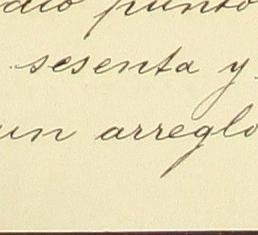 punto
sesenta y
un arreglo